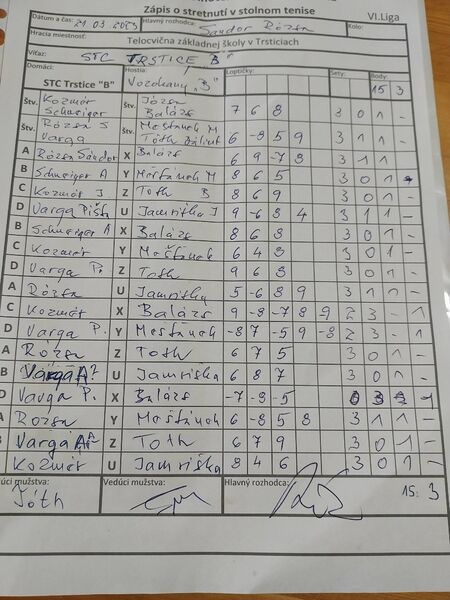 Zápis o stretnutí v stolnom tenise VI.Liga
Dátum a čas: 21 03 2025 Hlavný rozhodca: Sandor Rózsa Kolo:
Hracia miestnosť: Telocvičňa základnej školy v Trsticiach
Víťaz: STC TRSTICE B
Domáci: Hostia: Loptičky: Sety: Body:
STC Trstice "B" Vozokany "B" 15 3
Štv. Kozmér Schweiger Štv. Józsa Balázs 7 6 8 3 0 1 -
Štv. Rózsa S Varga Štv. Mešťánek M Tóth 6 -8 5 9 3 1 1 -
A Rózsa Sándor X Balázs 6 9 -7 8 3 1 1
B Schweiger A Y Mešťánek M 8 6 5 3 0 1
C Kozmér J Z Toth B 8 6 9 3 0 1 -
D Varga Pišta U Jamriška J 9 -6 8 4 3 1 1 -
B Schweiger A X Balázs 8 6 8 3 0 1 -
C Kozmér Y Mešťánek 6 4 8 3 0 1 -
D Varga P. Z Toth 9 6 8 3 0 1 -
A Rózsa U Jamriška 5 -6 8 9 3 1 1 -
C Kozmér X Balázs 9 -8 -7 8 -9 2 3 - 1
D Varga P. Y Mešťánek -8 7 -5 9 -8 2 3 - 1
A Rózsa Z Toth 6 7 5 3 0 1 -
B Varga U Jamriška 6 8 7 3 0 1 -
D Varga P. X Balázs -7 -8 -5 0 3 - 1
A Rózsa Y Mešťánek 6 -8 5 8 3 1 1 -
B Varga Z Toth 6 7 9 3 0 1 -
Kozmér U Jamriška 8 4 6 3 0 1 -
Vedúci mužstva: Vedúci mužstva: Hlavný rozhodca: 15:3
Tóth